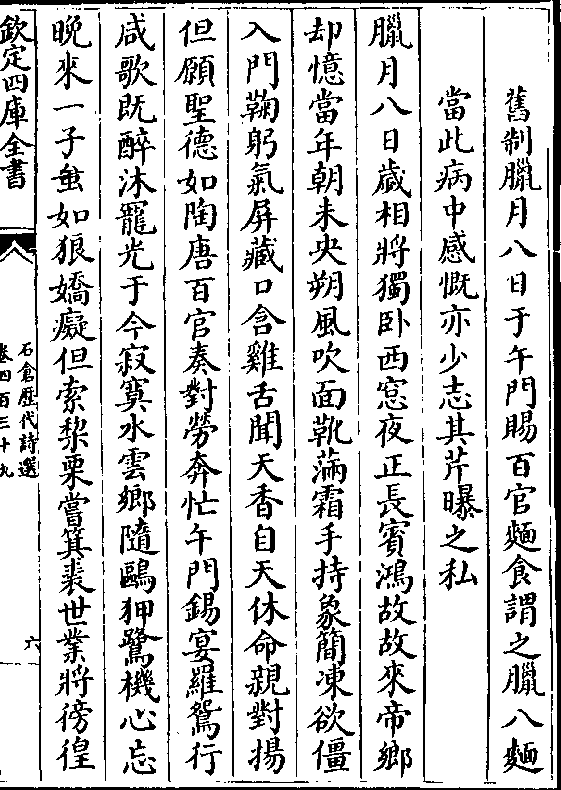 舊制臘月八日于午門賜百官麵食謂之臘八麵
當此病中感慨亦少志其芹曝之私
臘月八日歲相將獨卧西窓夜正長賓鴻故故來帝鄉
却憶當年朝未央朔風吹面靴滿霜手持象簡凍欲僵
入門鞠躬氣屏藏口含雞舌聞天香自天休命親對揚
但願聖德如陶唐百官奏對勞奔忙午門錫宴羅鴛行
咸歌既醉沐寵光于今寂寞水雲鄉隨鷗狎鷺機心忘
晚來一子䖝如狼嬌癡但索棃栗嘗箕裘世業將徬徨
欽定四庫全書
石倉歷代詩選
卷四百三十九
六